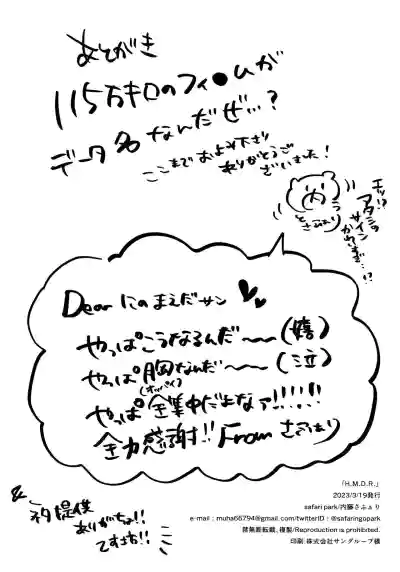 あとがき
115万キロのフィ●ムが
データ名なんだぜ…?
ここまでおよみ下さり
ありがとうご
ざいました!
エッ!?
アタシの
サイン
Dear にのまえださん
やっぱこうなるんだ~~(嬉)
やっぱ胸なんだ~~(泣)
(オッパイ)
やっぱ全集中だよなァ!!!!!
全力感謝!! From さふぁり
&
ネタ提供
ありがちょ!!
ですき!!
「H.M.D.R.」
2023/3/19発行
safari park/内藤さふぁり
e-mail:muha66794@gmail.com/twitterID:@safaringopark
禁無断転載、複製/Reproduction is prohibited.
印刷:株式会社サングループ様